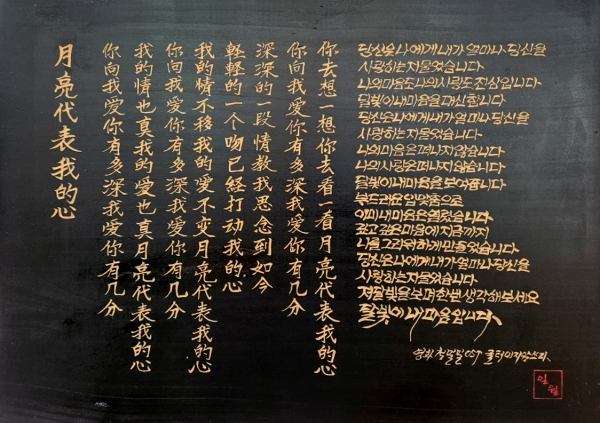 月亮代表我的心
你向我爱你有多深我爱你有几分
我的情也真我的爱也真月亮代表我的心
你向我爱你有多深我爱你有几分
我的情不移我的爱不变月亮代表我的心
轻轻的一个吻已经打动我的心
深深的一段情教我思念到如今
你向我爱你有多深我爱你有几分
你去想一想你去看一看月亮代表我的心
당신은 나에게 내가 얼마나 당신을
사랑하는지 물었습니다
나의 마음도 나의 사랑도 진심입니다
달빛이 내 마음을 대신합니다
당신은 나에게 내가 얼마나 당신을
사랑하는지 물었습니다
나의 마음은 떠나지 않습니다
나의 사랑은 떠나지 않습니다
달빛이 내 마음을 보여줍니다
부드러운 입맞춤으로
이미 내 마음은 열렸습니다
깊고 깊은 마음에 지금까지
나를 그리워하게 만들었습니다
당신은 나에게 내가 얼마나 당신을
사랑하는지 물었습니다
저 달빛을 보며 한번 생각해보세요
달빛이 내 마음입니다
영화 첨밀밀 OST
일월